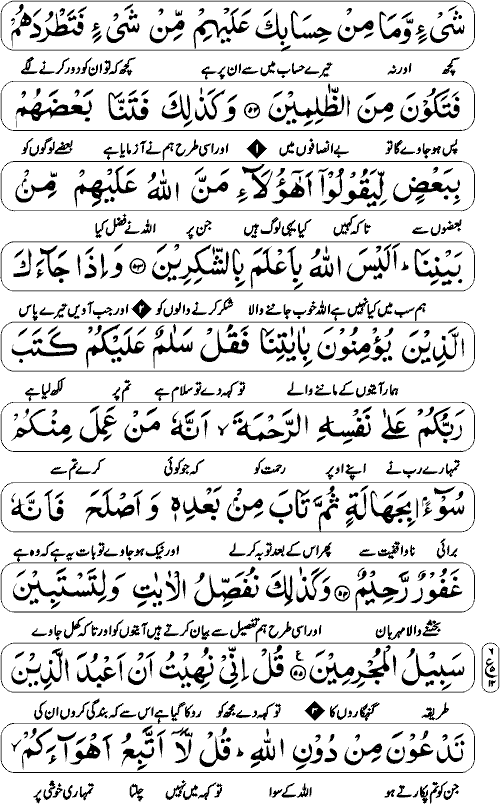 شَیْءٍ وَّمَا مِنْ حِسَابِكَ عَلَیْهِمْ مِّنْ شَیْءٍ فَتَطْرُدَهُمْ
کچھ اور نہ تیرے حساب میں سے ان پر ہے کچھ کہ تو ان کو دور کرنے لگے
فَتَكُوْنَ مِنَ الظّٰلِمِیْنَ ﴿۵۲﴾ وَكَذٰلِكَ فَتَنَّا بَعْضَهُمْ
پس ہو جاوے گا تو بے انصافوں میں ۱ اور اسی طرح ہم نے آزمایا ہے بعضے لوگوں کو
بِبَعْضٍ لِّیَقُوْلُوْۤا اَهٰۤؤُلَآءِ مَنَّ اللّٰهُ عَلَیْهِمْ مِّنْ
بعضوں سے تاکہ کہیں کیا یہی لوگ ہیں جن پر اللہ نے فضل کیا
بَیْنِنَا ؕ اَلَیْسَ اللّٰهُ بِاَعْلَمَ بِالشّٰكِرِیْنَ ﴿۵۳﴾ وَاِذَا جَآءَكَ
ہم سب میں کیا نہیں ہے اللہ خوب جاننے والا شکر کرنے والوں کو ۲ اور جب آویں تیرے پاس
الَّذِیْنَ یُؤْمِنُوْنَ بِاٰیٰتِنَا فَقُلْ سَلٰمٌ عَلَیْكُمْ كَتَبَ
ہمار آیتوں کے ماننے والے تو کہہ دے تو سلام ہے تم پر لکھ لیا ہے
رَبُّكُمْ عَلٰی نَفْسِهِ الرَّحْمَةَ ۙ اَنَّهٗ مَنْ عَمِلَ مِنْكُمْ
تمہارے رب نے اپنے اوپر رحمت کو کہ جو کوئی کرے تم سے
سُوْٓءًۢا بِجَهَالَةٍ ثُمَّ تَابَ مِنْۢ بَعْدِهٖ وَاَصْلَحَ فَاَنَّهٗ
برائی نا واقفیت سے پھر اس کے بعد توبہ کر لے اور نیک ہو جاوے تو بات یہ ہے کہ وہ ہے
غَفُوْرٌ رَّحِیْمٌ ﴿۵۴﴾ وَكَذٰلِكَ نُفَصِّلُ الْاٰیٰتِ وَلِتَسْتَبِیْنَ
بخشنے والا مہربان اور اسی طرح ہم تفصیل سے بیان کرتے ہیں آیتوں کو اور تاکہ کھل جاوے
سَبِیْلُ الْمُجْرِمِیْنَ ﴿۵۵﴾ قُلْ اِنِّیْ نُهِیْتُ اَنْ اَعْبُدَ الَّذِیْنَ
طریقہ گنہگاروں کا ۳ تو کہہ دے مجھ کو روکا گیا ہے اس سے کہ بندگی کروں ان کی
تَدْعُوْنَ مِنْ دُوْنِ اللّٰهِ ؕ قُلْ لَّاۤ اَتَّبِعُ اَهْوَآءَكُمْ ۙ
جن کو تم پکارتے ہو اللہ کے سوا تو کہہ میں نہیں چلتا تمہاری خوشی پر